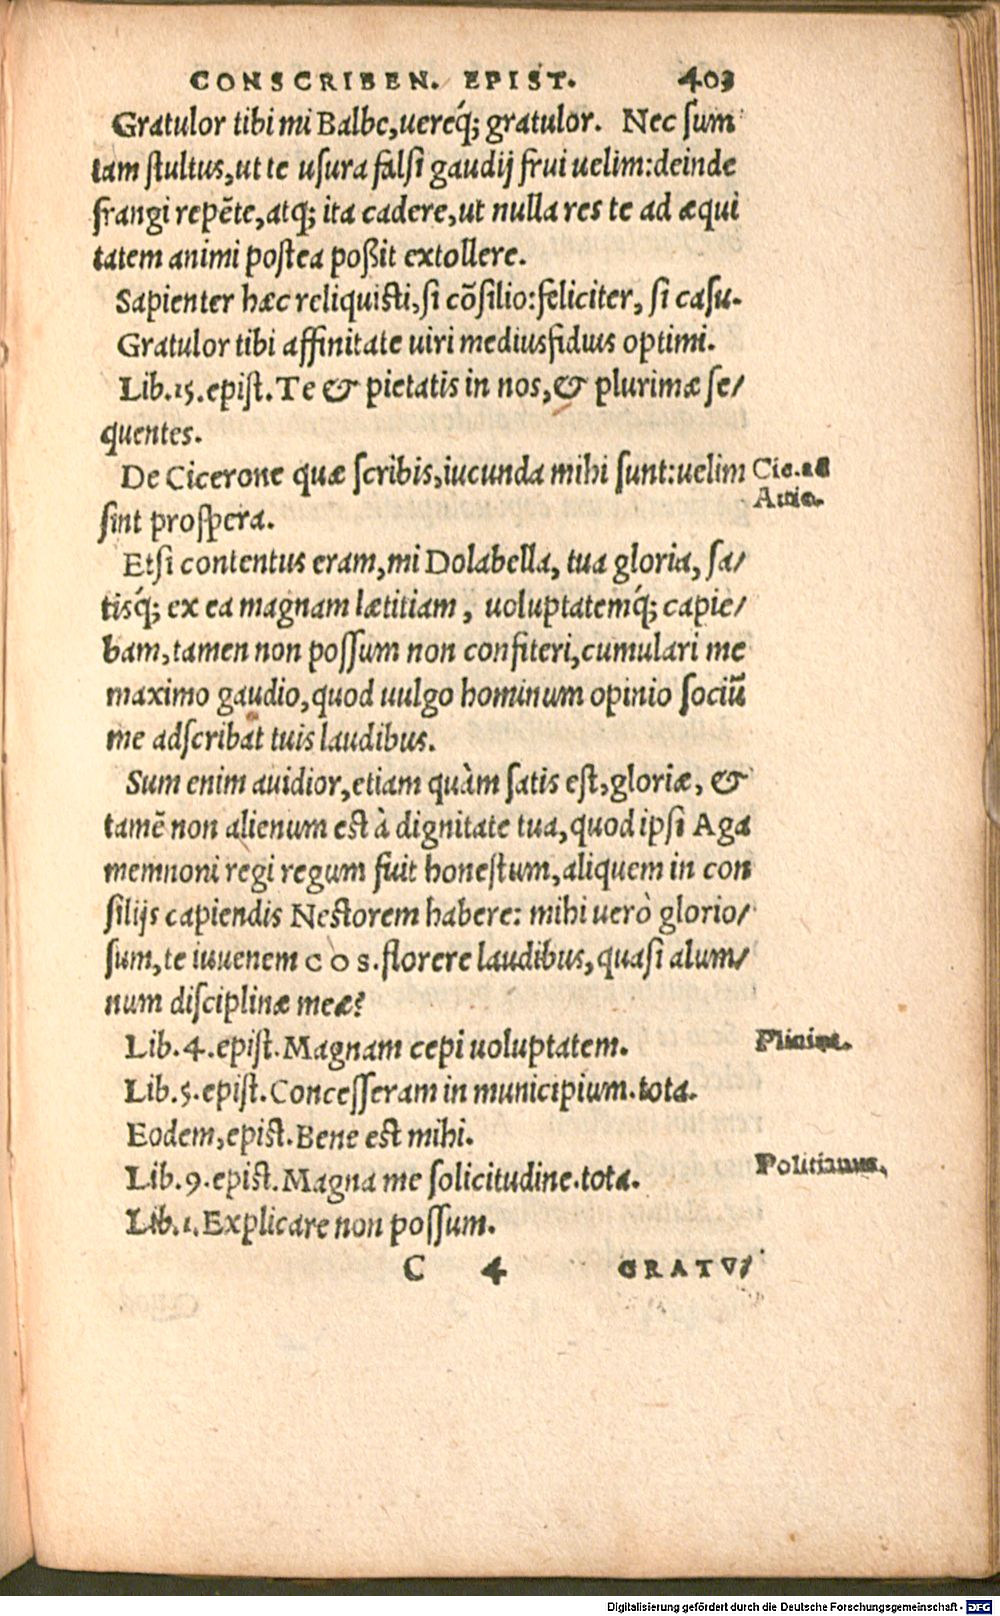 CONSCRIBEN. EPIST. 403
Gratulor tibi mi Balbe, uereq́; gratulor. Nec sum
tam stultus, ut te usura falsi gaudij frui uelim: deinde
frangi repẽte, atq; ita cadere, ut nulla res te ad æqui
tatem animi postea poßit extollere.
Sapienter hæc reliquisti, si cõsilio: feliciter, si casu.
Gratulor tibi affinitate uiri mediusfidius optimi.
Lib. 15. epist. Te & pietatis in nos, & plurimæ se/
quentes.
De Cicerone quæ scribis, iucunda mihi sunt: uelim
Cic. ad
Attic.
sint prospera.
Etsi contentus eram, mi Dolabella, tua gloria, sa/
tisq́; ex ea magnam lætitiam, uoluptatemq́; capie/
bam, tamen non possum non confiteri, cumulari me
maximo gaudio, quod uulgo hominum opinio sociũ
me adscribat tuis laudibus.
Sum enim auidior, etiam quàm satis est, gloriæ, &
tamẽ non alienum est à dignitate tua, quod ipsi Aga
memnoni regi regum fuit honestum, aliquem in con
silijs capiendis Nestorem habere: mihi uerò glorio/
sum, te iuuenem COS. florere laudibus, quasi alum/
num disciplinæ meæ?
Lib. 4. epist. Magnam cepi uoluptatem.
Plinius.
Lib. 5. epist. Concesseram in municipium. tota.
Eodem, epist. Bene est mihi.
Lib. 9. epist. Magna me solicitudine. tota.
Politianus.
Lib. 1. Explicare non possum.
C 4 GRATV/
Digitalisierung gefördert durch die Deutsche Forschungsgemeinschaft - DFG